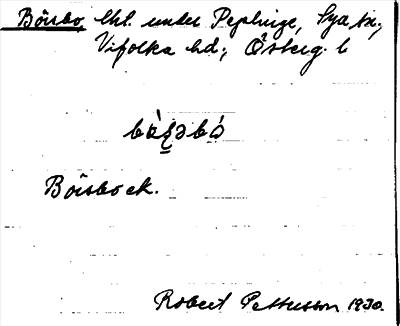 Börsbo, lht. under Pephinge, Sya sn;
Vifolka hd; Österg. l
Börsbo ek.
Robert Pettersson 1930.